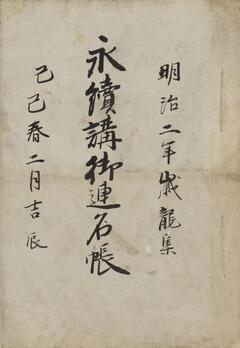 明治二年歳龍集
永續講御連名帳
己巳春二月吉辰